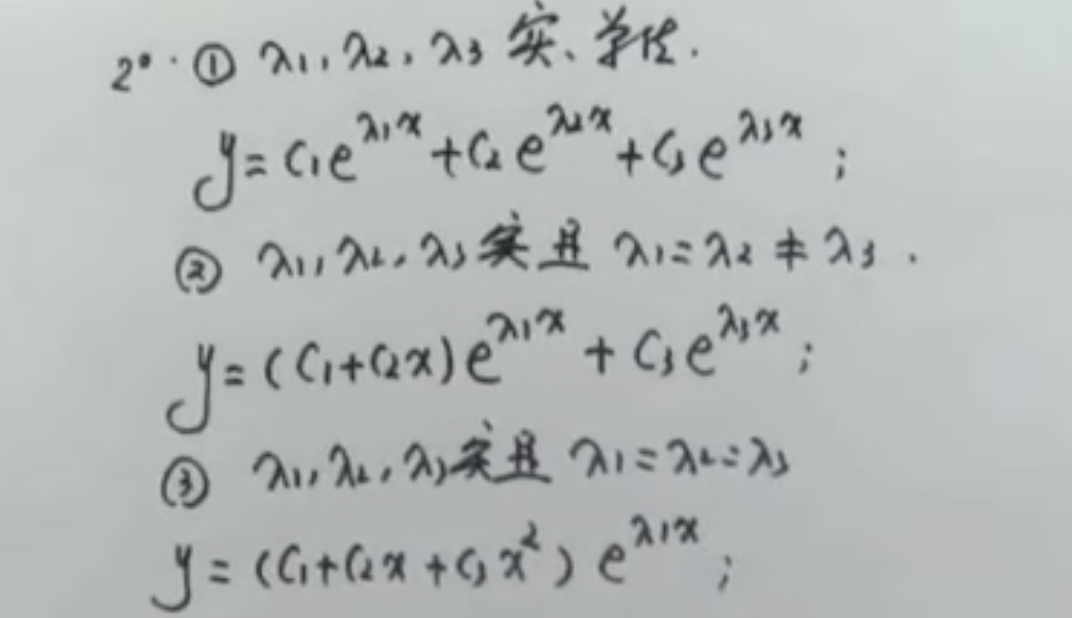 2°. ① λ1, λ2, λ3 实、单值.
y = C1e^{λ1x} + C2e^{λ2x} + C3e^{λ3x} ;
② λ1, λ2, λ3 实且 λ1 = λ2 ≠ λ3 .
y = (C1+C2x)e^{λ1x} + C3e^{λ3x} ;
③ λ1, λ2, λ3 实且 λ1 = λ2 = λ3
y = (C1+C2x+C3x²) e^{λ1x} ;